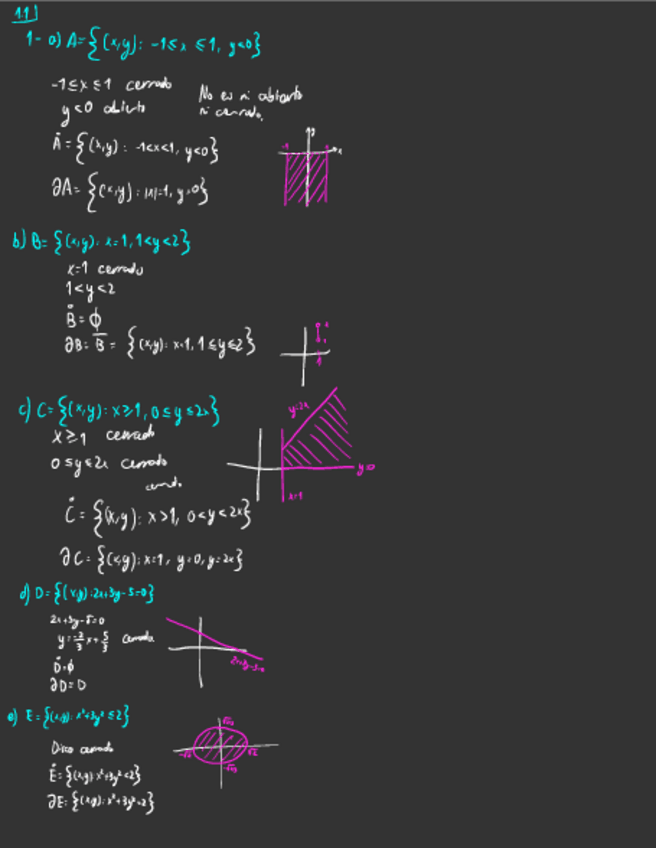 1.1
1- a) A={(x,y): -1≤x≤1, y<0}
-1≤x≤1 cerrado
y<0 abierto
No es ni abierto
ni cerrado.
Å={(x,y): -1<x<1, y<0}
∂A={(x,y): |x|=1, y=0}
-1 1
y
x
b) B={(x,y): x=1, 1<y<2}
x=1 cerrado
1<y<2
B̊=ϕ
∂B=B̄={(x,y): x=1, 1≤y≤2}
c) C={(x,y): x≥1, 0≤y≤2x}
x≥1 cerrado
0≤y≤2x cerrado
y=2x
y=0
x=1
C̊={(x,y): x>1, 0<y<2x}
∂C={(x,y): x=1, y=0, y=2x}
d) D={(x,y): 2x+3y-5=0}
2x+3y-5=0
y=-2/3x+5/3 cerrado
D̊=ϕ
∂D=D
2x+3y-5=0
e) E={(x,y): x²+3y²≤2}
Disco cerrado
E̊={(x,y): x²+3y²<2}
∂E={(x,y): x²+3y²=2}
-√2 √2